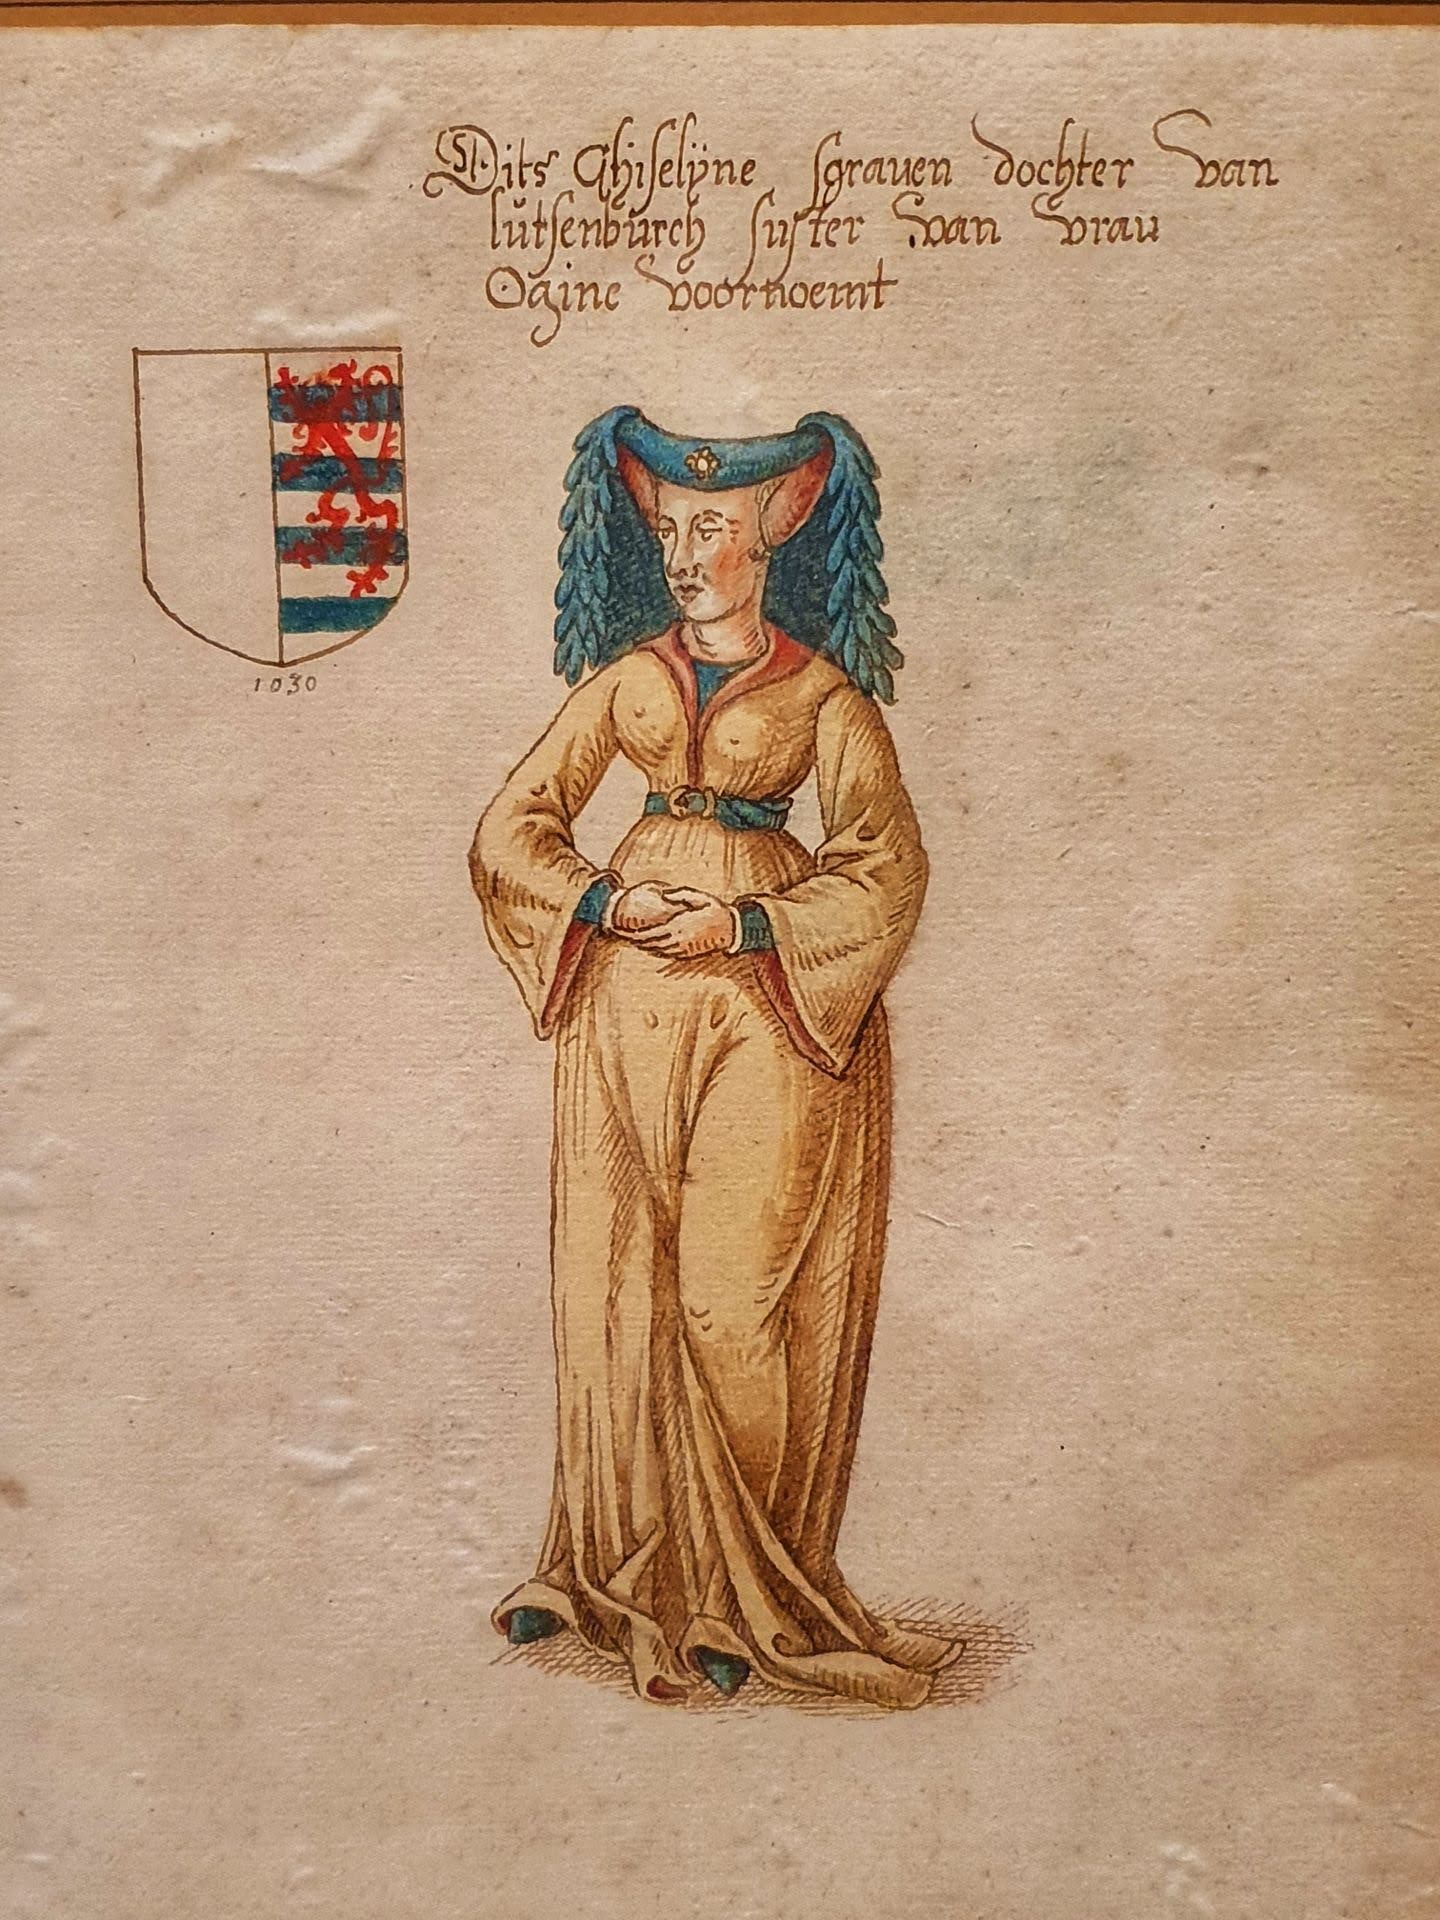 Dits Ghiselÿne sgrauen dochter van
lutsenburch suster van vrau
Ogine voornoemt
1030